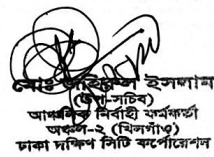 মোঃ সাইফুল ইসলাম
(উপ-সচিব)
আঞ্চলিক নির্বাহী কর্মকর্তা
অঞ্চল-২ (খিলগাঁও)
ঢাকা দক্ষিণ সিটি কর্পোরেশন